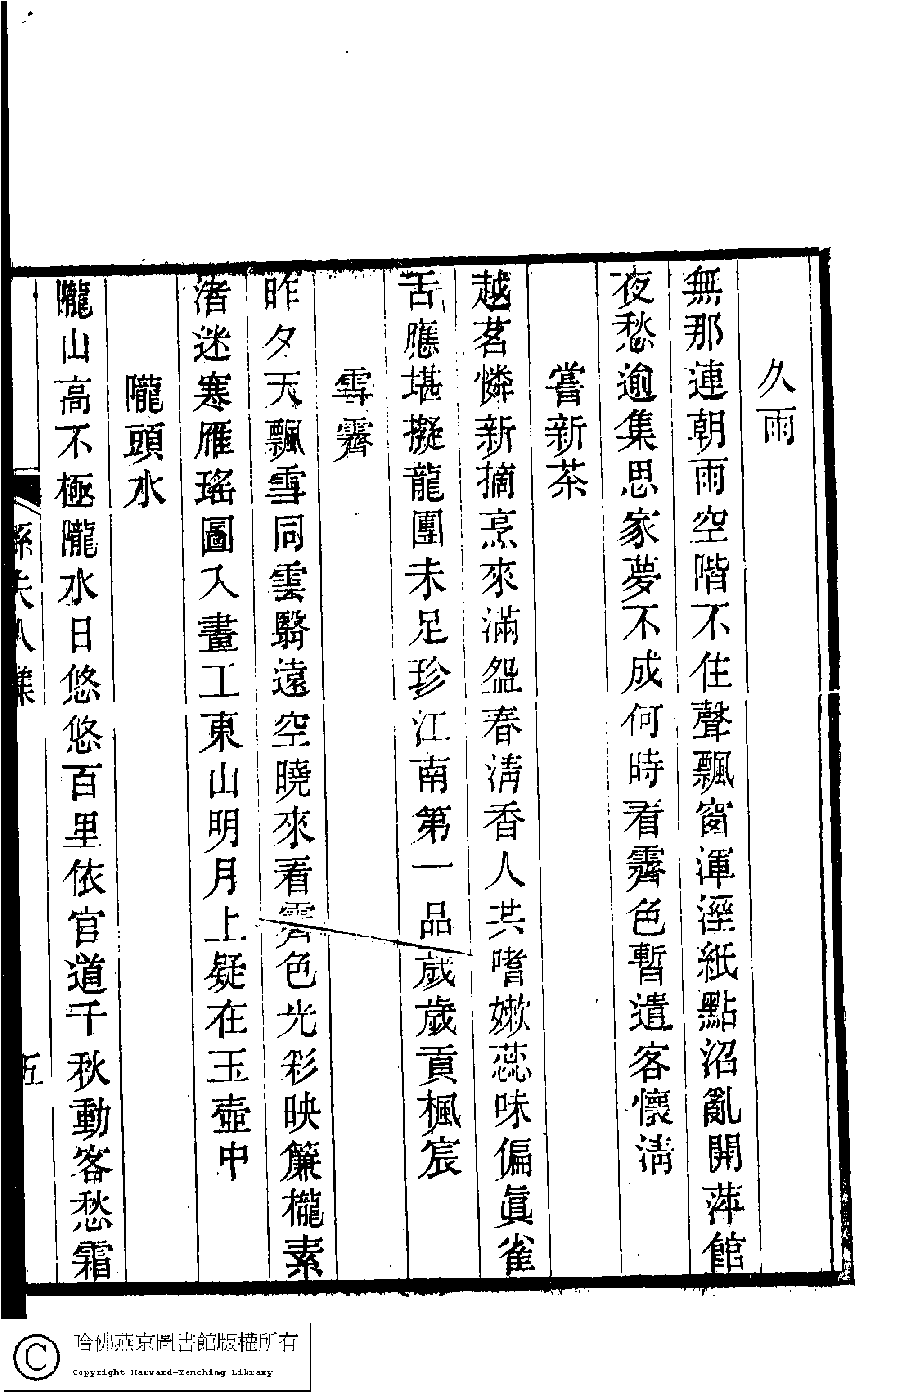 久雨
無那連朝雨空階不住聲飄窗渾溼紙點沼亂開萍館
夜愁逾集思家夢不成何時看霽色暫遣客懷淸
嘗新茶
越茗憐新摘烹來滿盌春淸香人共嗜嫩蕊味偏眞雀
舌應堪擬龍團未足珍江南第一品歲歲貢楓宸
雪霽
昨夕天飄雪同雲翳遠空曉來看霽色光彩映簾櫳素
渚迷寒雁瑤圖入畫工東山明月上疑在玉壺中
隴頭水
隴山高不極隴水日悠悠百里依官道千秋動客愁霜
孫夫人集
五
哈佛燕京圖書館版權所有
Copyright Harvard-Yenching Library